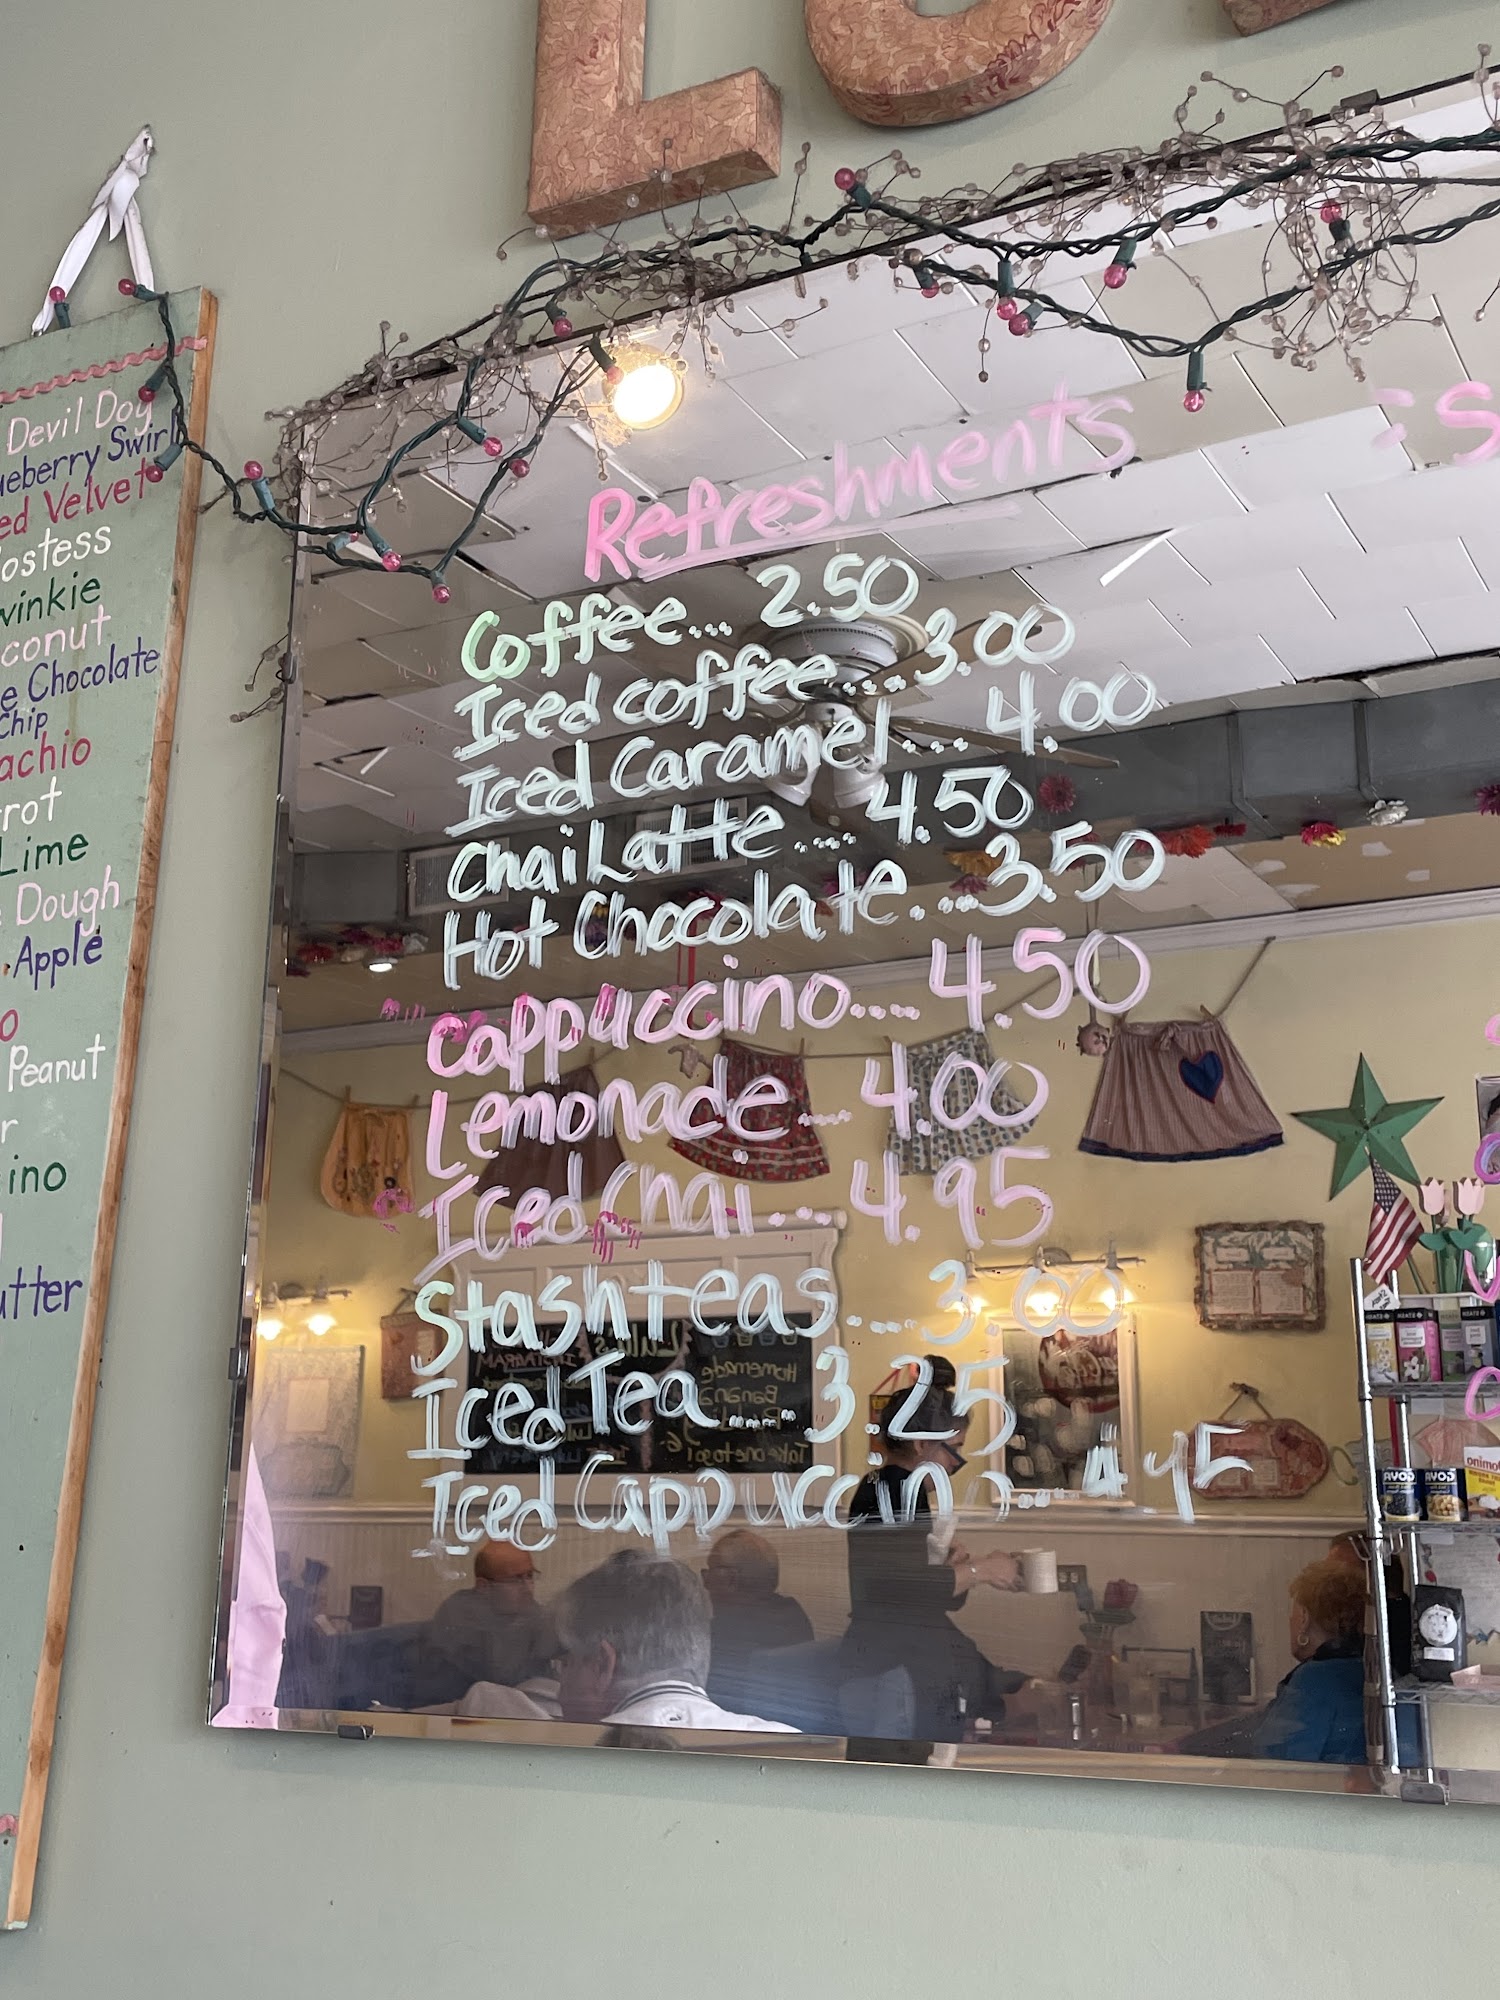 LU
Devil Dog
ueberry Swirl
ed Velvet
ostess
winkie
conut
e Chocolate
Chip
achio
rrot
Lime
Dough
. Apple
o
Peanut
r
ino
utter
Refreshments
Coffee... 2.50
Iced coffee.... 3.00
Iced Caramel.... 4.00
Chai Latte .... 4.50
Hot Chocolate.... 3.50
Cappuccino.... 4.50
Lemonade.... 4.00
Iced Chai ... 4.95
Stash teas... 3.00
Iced Tea .... 3.25
Iced Cappuccino... 4.95
Lulu's
INSTAGRAM
Homemade
Banana
Take one to go!
GOYA
GOYA